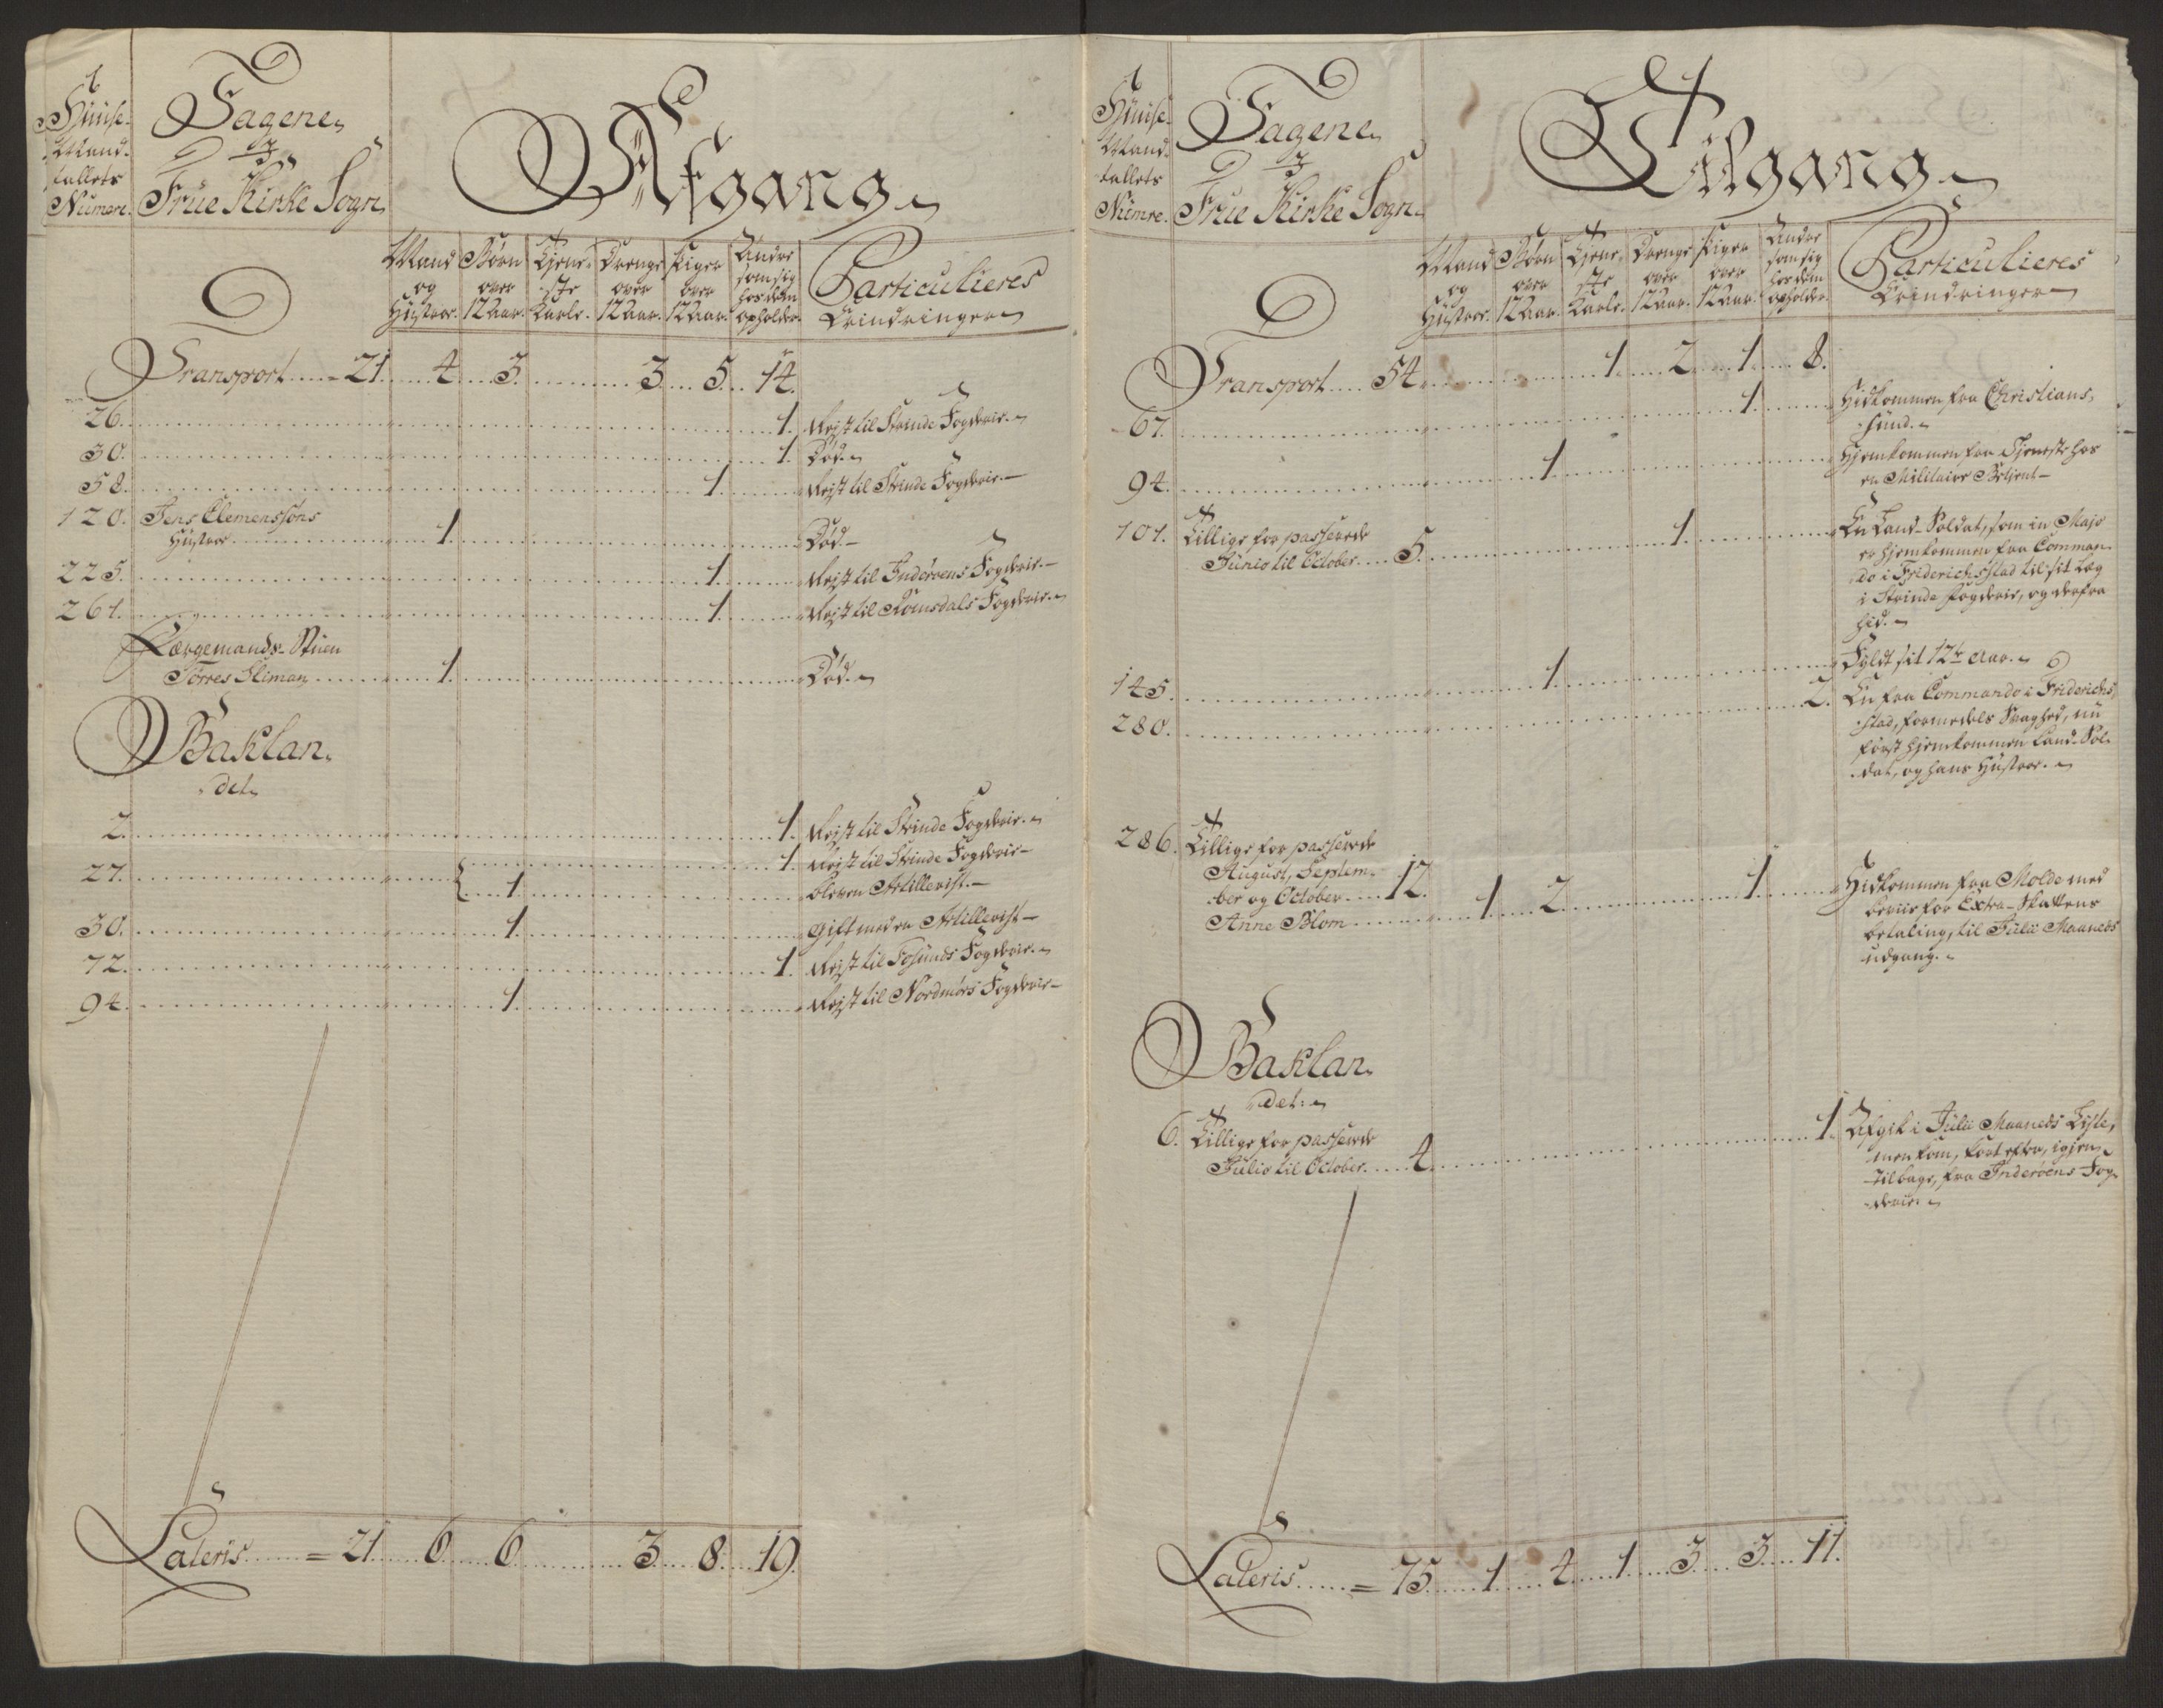 Huuse-
Mand-
tallets
Numere.
Tagene
i
Frue Kirke Sogn
Afgang
Mand
og
Hustroe.
Børn
over
12 Aar.
Tiene-
ste
Karle.
Drenge
over
12 Aar.
Piger
over
12 Aar.
Andre
som sig
hos dem
opholder.
Particulieres
Erindringer
Transport ..... 21. 4. 3. 3. 5. 14.
26. 1. Rejst til Strinde Fogderie.
30. 1. Død.
58. 1. Rejst til Strinde Fogderie.
120. Jens Clemenssøns
Hustroe 1. Død.
225. 1. Rejst til Inderøens Fogderie.
261. 1. Rejst til Romsdals Fogderie.
Færgemands-Stuen
Torres Sliman 1. Død.
Baklan-
det
2. 1. Rejst til Strinde Fogderie.
27. 1. Rejst til Strinde Fogderie
1. bleven Artillerist.
30. 1. Gift med en Artillerist
72. 1. Rejst til Fosunds Fogderie.
94. 1. Rejst til Nordmørs Fogderie
Lateris = 21. 6. 6. 3. 8. 19.
Huuse-
Mand-
tallets
Numre.
Tagene
i
Frue Kirke Sogn
Tilgang
Mand
og
Hustroe.
Børn
over
12 Aar.
Tiene-
ste
Karle.
Drenge
over
12 Aar.
Piger
over
12 Aar.
Andre
som sig
hos dem
opholder.
Particulieres
Erindringer
Transport .... 54. 1. 2. 1. 8.
67. 1. Hidkommen fra Christians-
sund.
94. 1. Hjemkommen fra Tjeneste hos
en Militaire Betjent
101. Tillige for passerede
Junio til October .... 5. 1. En Land-Soldat, som in Majo
er hjemkommen fra Comman-
do i Friderichsstad til sit Læg
i Strinde Fogderie, og derfra
hid.
145. 1. Fyldt sit 12te Aar.
280. 2. En fra Commando i Friderichs-
stad, formedels Svaghed, nu
først hjemkommen Land-Sol-
dat, og hans Hustroe.
286. Tillige for passerede
August, Septem-
ber og October .... 12.
Anne Blom 1. 2. 1. Hidkommen fra Molde med
beviis for Extra-Skattens
betaling, til Julii Maaneds
udgang.
Baklan-
det:
6. Tillige for passerede
Julio til October .... 4. 1. Afgik i Julii Maaneds Liste,
men kom, kort efter, igjen
tilbage, fra Inderøens Fog-
derie.
Lateris = 75. 1. 4. 1. 3. 3. 11.